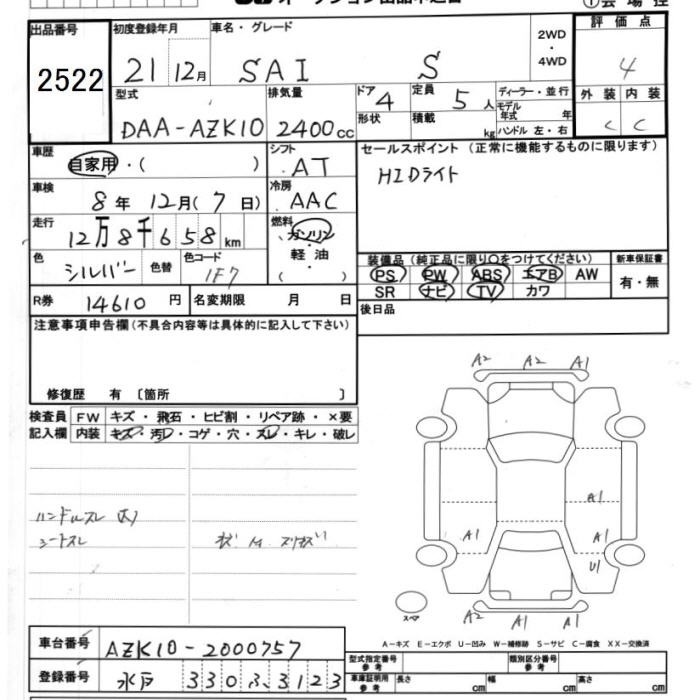 出品番号 初度登録年月 車名・グレード 2WD・4WD 評価点
2522 21 12月 SAI S 4
型式 排気量 ドア 4 定員 5人 ディーラー・並行 外装 内装
DAA-AZK10 2400cc 形状 積載 kg モデル年式 年 ハンドル 左・右 C C
車歴 自家用・( ) シフト AT セールスポイント (正常に機能するものに限ります)
車検 8年 12月(7日) 冷房 AAC HIDライト
走行 12万8千658km 燃料 ガソリン・軽油・( )
色 シルバー 色替 色コード 1F7
装備品 (純正品に限り○をつけてください) 新車保証書
PS PW ABS エアB AW 有・無
SR ナビ TV カワ
R券 14610円 名変期限 月 日 後日品
注意事項申告欄(不具合内容等は具体的に記入して下さい)
修復歴 有 〔箇所 〕
検査員 FW キズ・飛石・ヒビ割・リペア跡・×要
記入欄 内装 キズ・汚レ・コゲ・穴・スレ・キレ・破レ
A2 A2 A1
A1
A1 A1
U1
ハンドルスレ
シートスレ
A2 A1 A1
スペア
A-キズ E-エクボ U-凹み W-補修跡 S-サビ C-腐食 XX-交換済
車台番号 AZK10-2000757
登録番号 水戸 330 ふ 3123
型式指定番号 参考 類別区分番号 参考
車庫証明用 参考 長さ cm 幅 cm 高さ cm